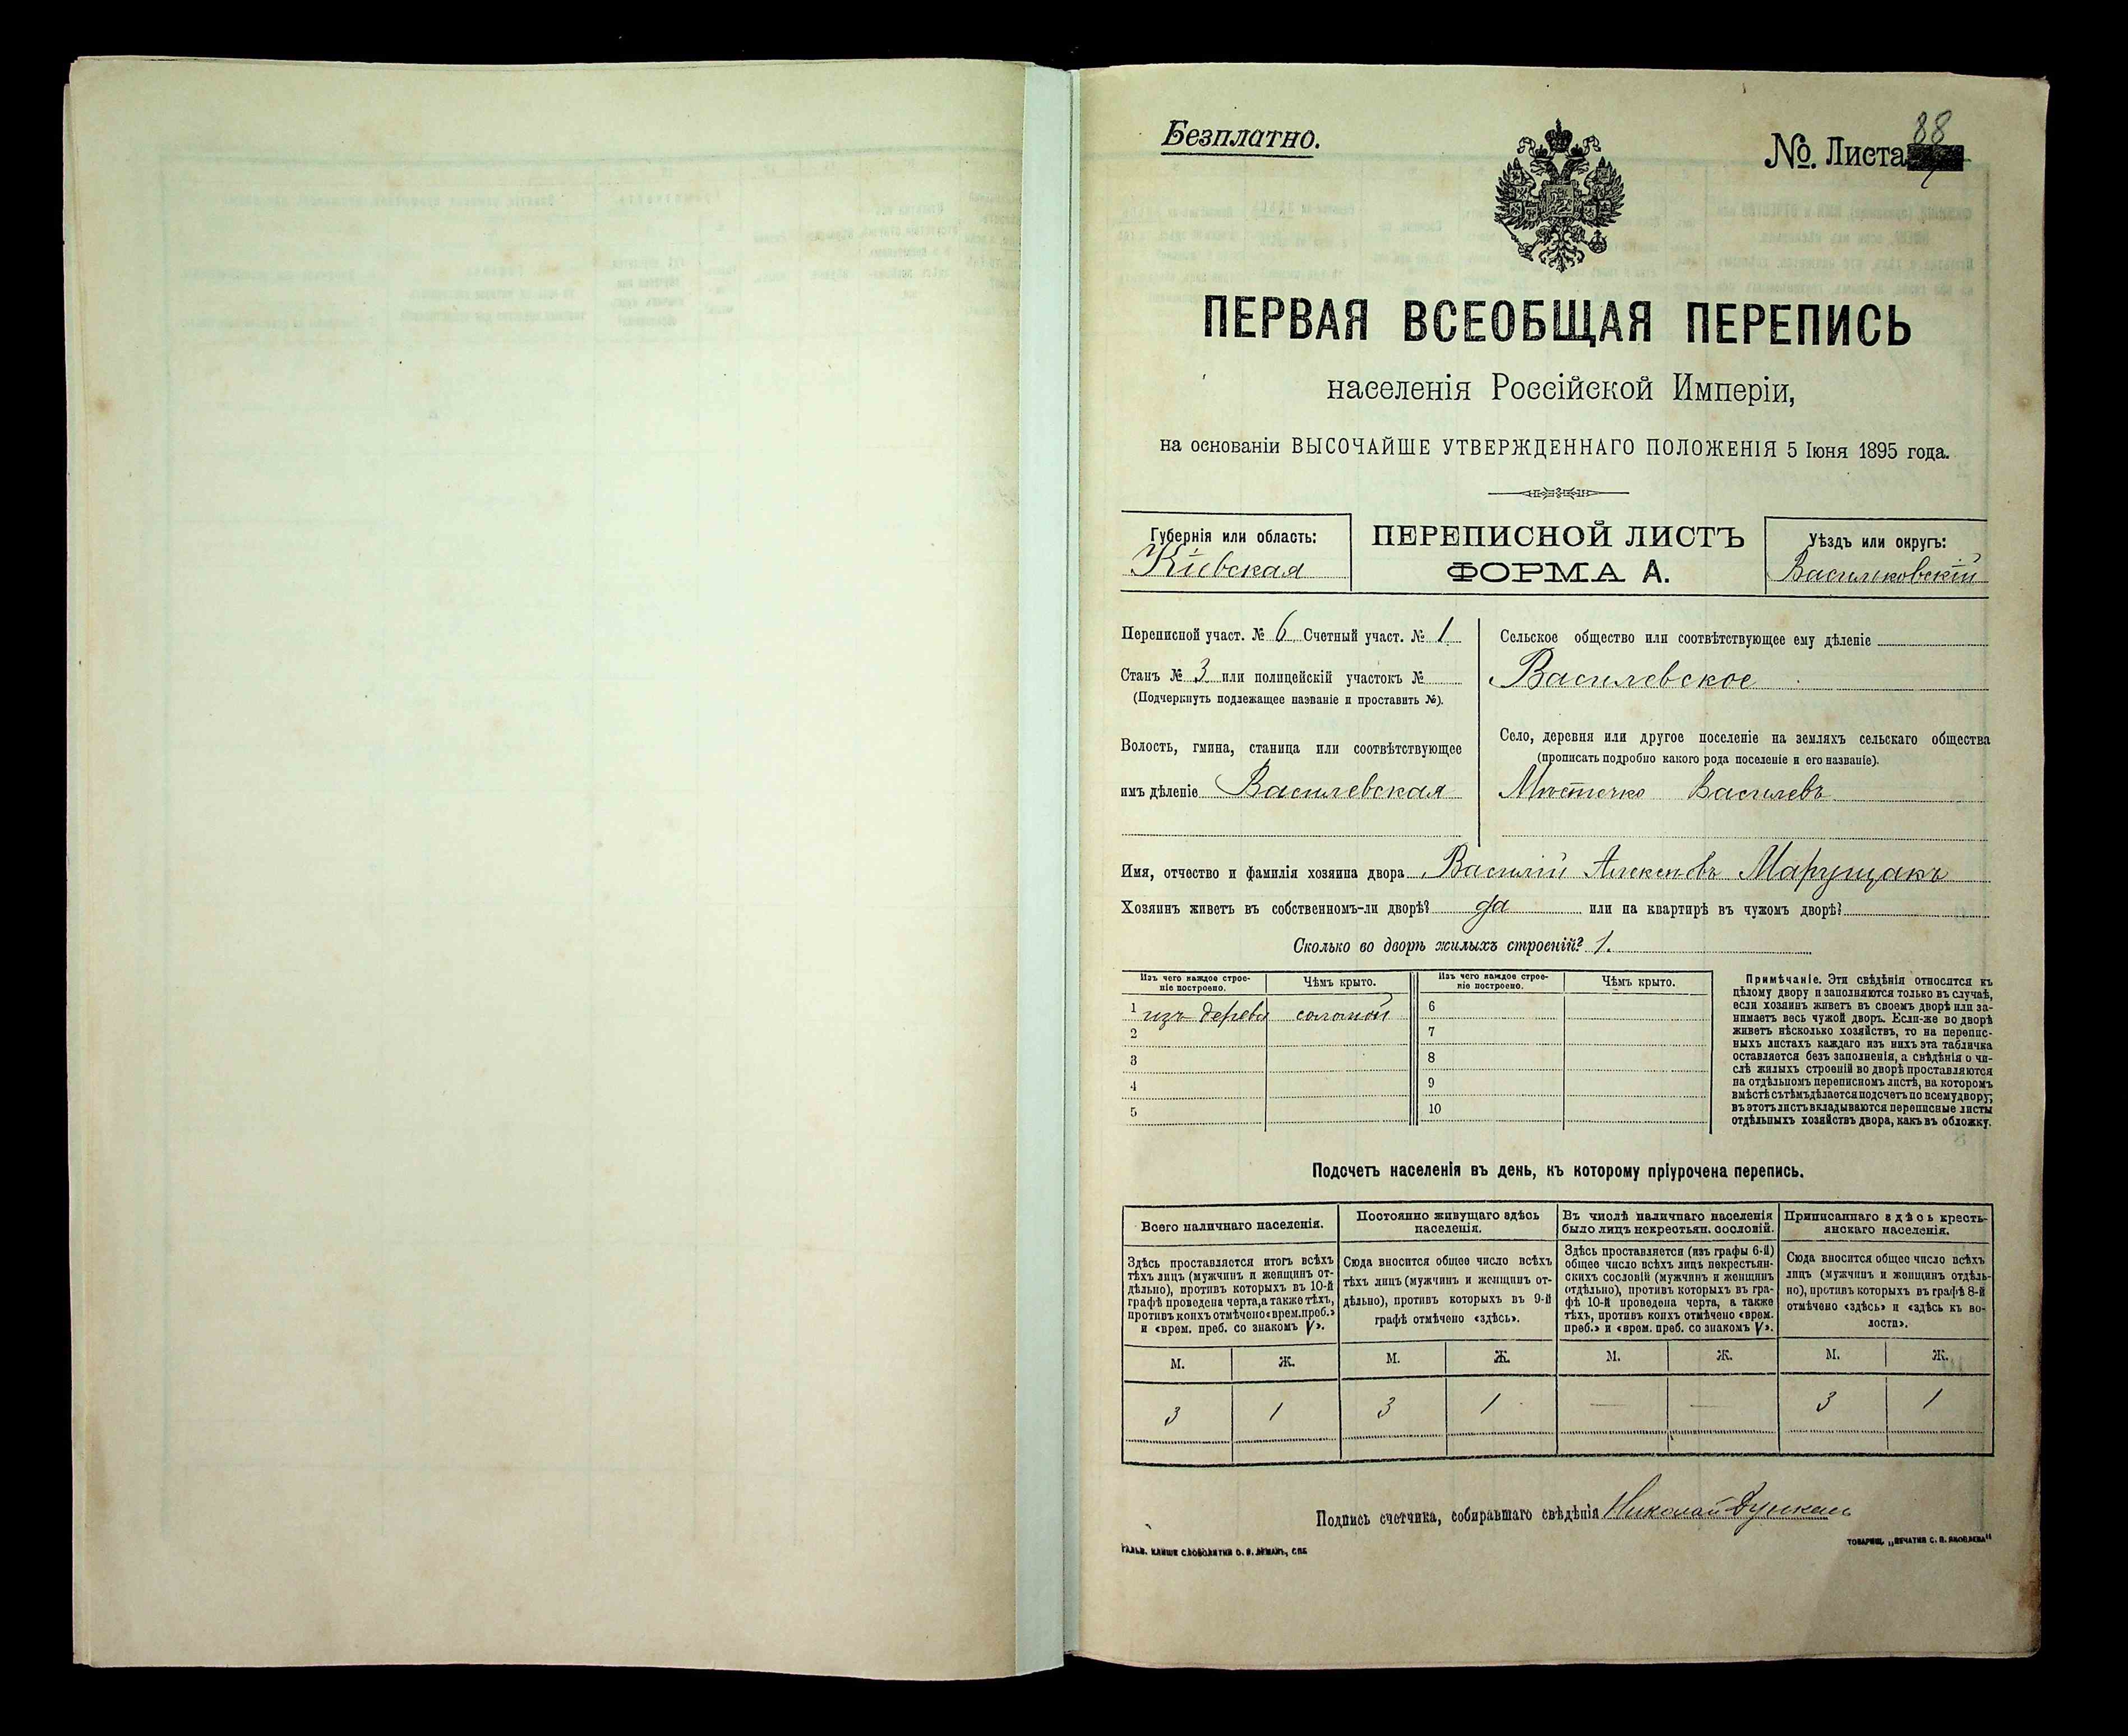 88
Безплатно.
№. Листа
ПЕРВАЯ ВСЕОБЩАЯ ПЕРЕПИСЬ
населенія Россійской Имперіи,
на основаніи ВЫСОЧАЙШЕ УТВЕРЖДЕННАГО ПОЛОЖЕНІЯ 5 Іюня 1895 года.
Губернія или область:
Кіевская
ПЕРЕПИСНОЙ ЛИСТЪ
ФОРМА А.
Уѣздъ или округъ:
Васильковскій
Переписной участ. № 6 Счетный участ. № 1
Станъ № 3 или полицейскій участокъ №
(Подчеркнуть подлежащее названіе и проставить №).
Волость, гмина, станица или соотвѣтствующее
имъ дѣленіе Василевская
Сельское общество или соотвѣтствующее ему дѣленіе
Василевское
Село, деревня или другое поселеніе на земляхъ сельскаго общества
(прописать подробно какого рода поселеніе и его названіе).
Мѣстечко Василевъ
Имя, отчество и фамилія хозяина двора Василій Алексѣевъ Марущакъ
Хозяинъ живетъ въ собственномъ-ли дворѣ? да или на квартирѣ въ чужомъ дворѣ?
Сколько во дворѣ жилыхъ строеній? 1.
Изъ чего каждое строе-
ніе построено.
Чѣмъ крыто.
Изъ чего каждое строе-
ніе построено.
Чѣмъ крыто.
1 изъ дерева соломой 6
2 7
3 8
4 9
5 10
Примѣчаніе. Эти свѣдѣнія относятся къ
цѣлому двору и заполняются только въ случаѣ,
если хозяинъ живетъ въ своемъ дворѣ или за-
нимаетъ весь чужой дворъ. Если-же во дворѣ
живетъ нѣсколько хозяйствъ, то на перепис-
ныхъ листахъ каждаго изъ нихъ эта табличка
оставляется безъ заполненія, а свѣдѣнія о чи-
слѣ жилыхъ строеній во дворѣ проставляются
на отдѣльномъ переписномъ листѣ, на которомъ
вмѣстѣ съ тѣмъ дѣлается подсчетъ по всему двору;
въ этотъ листъ вкладываются переписные листы
отдѣльныхъ хозяйствъ двора, какъ въ обложку.
Подсчетъ населенія въ день, къ которому пріурочена перепись.
Всего наличнаго населенія.
Здѣсь проставляется итогъ всѣхъ
тѣхъ лицъ (мужчинъ и женщинъ от-
дѣльно), противъ которыхъ въ 10-й
графѣ проведена черта, а также тѣхъ,
противъ коихъ отмѣчено «врем. преб.»
и «врем. преб. со знакомъ V».
Постоянно живущаго здѣсь
населенія.
Сюда вносится общее число всѣхъ
тѣхъ лицъ (мужчинъ и женщинъ от-
дѣльно), противъ которыхъ въ 9-й
графѣ отмѣчено «здѣсь».
Въ числѣ наличнаго населенія
было лицъ некрестьян. сословій.
Здѣсь проставляется (изъ графы 6-й)
общее число всѣхъ лицъ некрестьян-
скихъ сословій (мужчинъ и женщинъ
отдѣльно), противъ которыхъ въ гра-
фѣ 10-й проведена черта, а также
тѣхъ, противъ коихъ отмѣчено «врем.
преб.» и «врем. преб. со знакомъ V».
Приписаннаго здѣсь кресть-
янскаго населенія.
Сюда вносится общее число всѣхъ
лицъ (мужчинъ и женщинъ отдѣль-
но), противъ которыхъ въ графѣ 8-й
отмѣчено «здѣсь» и «здѣсь къ во-
лости».
М. Ж. М. Ж. М. Ж. М. Ж.
3 1 3 1 — — 3 1
Подпись счетчика, собиравшаго свѣдѣнія Николай
ТОВАРИЩ. „ПЕЧАТНЯ С. П. ЯКОВЛЕВА"